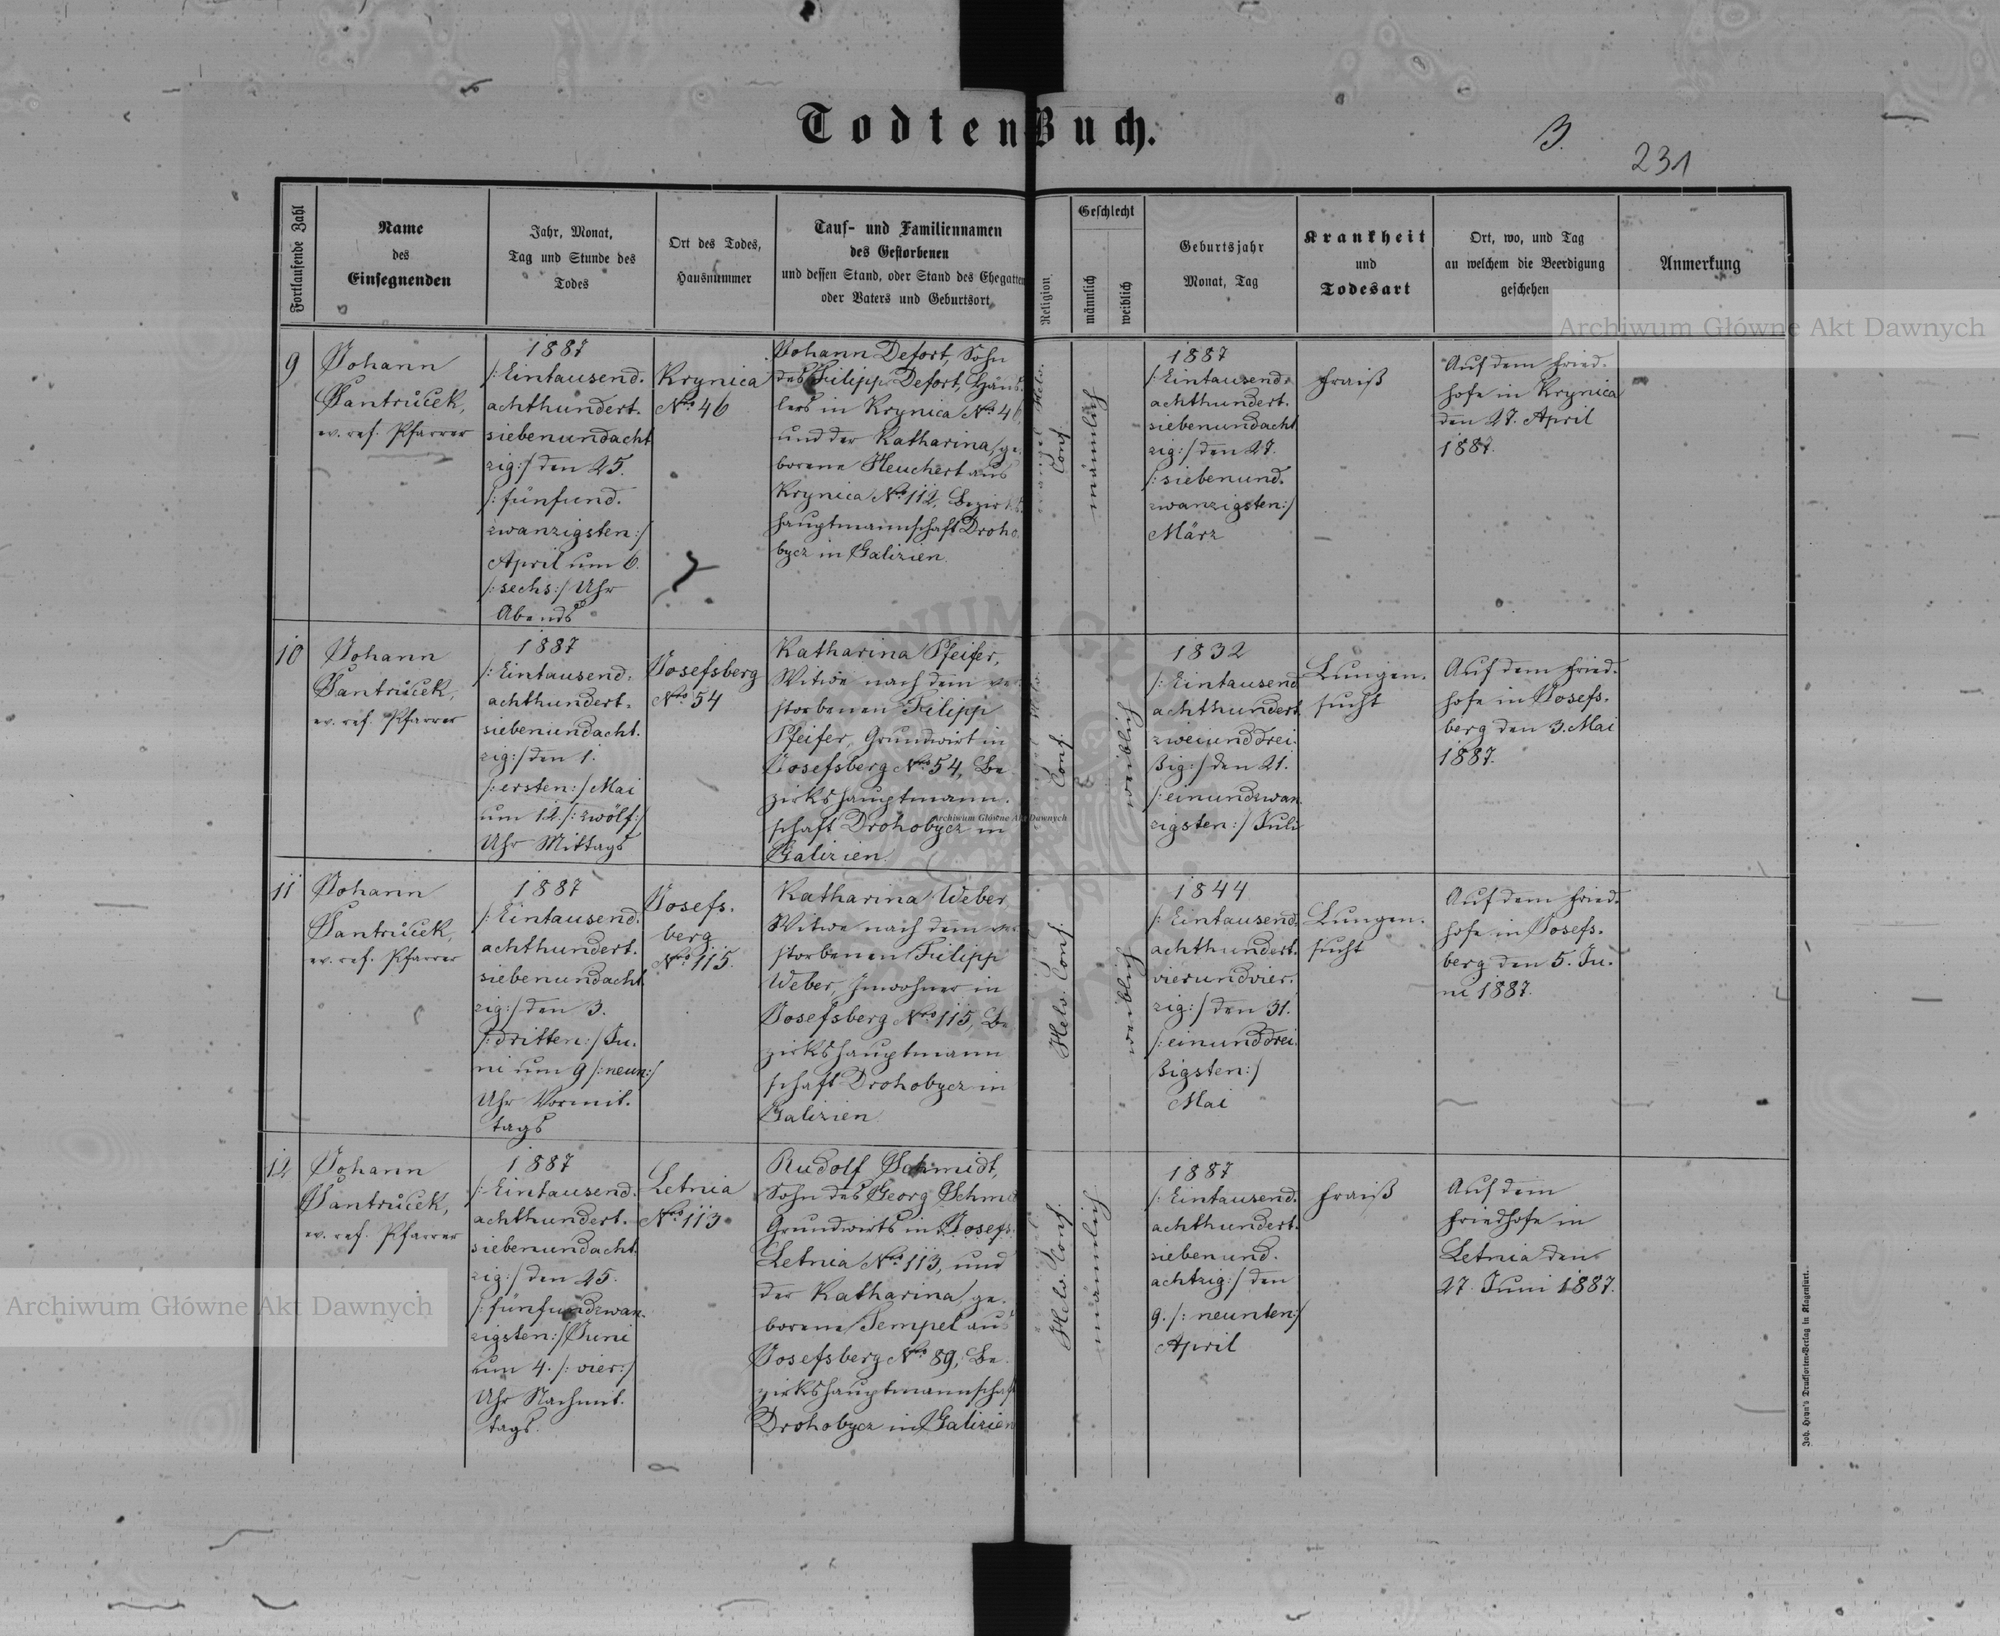 Todten-Buch.
B.
231
Fortlaufende Zahl
Name
des
Einsegnenden
Jahr, Monat,
Tag und Stunde des
Todes
Ort des Todes,
Hausnummer
Tauf- und Familiennamen
des Gestorbenen
und dessen Stand, oder Stand des Ehegatten
oder Vaters und Geburtsort
Religion
Geschlecht
männlich
weiblich
Geburtsjahr
Monat, Tag
Krankheit
und
Todesart
Ort, wo, und Tag
an welchem die Beerdigung
geschehen
Anmerkung
9
Johann
Jantrůcek,
ev. ref. Pfarrer
1887
/:Eintausend-
achthundert-
siebenundacht
zig:/ den 25.
/:fünfund-
zwanzigsten:/
April um 6.
/:sechs:/ Uhr
Abends
Krynica
No. 46
Johann Defort, Sohn
des Filipp Defort, Häus-
lers in Krynica No. 46,
und der Katharina ge-
borene Heuchert aus
Krynica No. 112, Bezirks-
hauptmannschaft Droho-
bycz in Galizien.
Helv.
Conf.
männlich
1887
/:Eintausend-
achthundert-
siebenundacht
zig:/ den 27.
/:siebenund-
zwanzigsten:/
März
Fraiß
Auf dem Fried-
hofe in Krynica
den 27. April
1887.
10
Johann
Jantrůcek,
ev. ref. Pfarrer
1887
/:Eintausend-
achthundert-
siebenundacht-
zig:/ den 1.
/:ersten:/ Mai
um 12. /:zwölf:/
Uhr Mittags
Josefsberg
No. 54
Katharina Pfeifer,
Witwe nach dem ver-
storbenen Filipp
Pfeifer, Grundwirt in
Josefsberg No. 54, Be-
zirkshauptmann-
schaft Drohobycz in
Galizien.
Conf.
weiblich
1832
/:Eintausend
achthundert
zweiunddrei-
ßig:/ den 21.
/:einundzwan-
zigsten:/ Juli
Lungen-
sucht
Auf dem Fried-
hofe in Josefs-
berg den 3. Mai
1887.
11
Johann
Jantrůcek,
ev. ref. Pfarrer
1887
/:Eintausend-
achthundert-
siebenundacht
zig:/ den 3.
/:dritten:/ Ju-
ni um 9 /:neun:/
Uhr Vormit-
tags
Josefs-
berg
No. 115.
Katharina Weber,
Witwe nach dem ver-
storbenen Filipp
Weber, Inwohner in
Josefsberg No. 115, Be-
zirkshauptmann
schaft Drohobycz in
Galizien
Helv. Conf.
weiblich
1844
/:Eintausend-
achthundert-
vierundvier-
zig:/ den 31.
/:einunddrei-
ßigsten:/
Mai
Lungen-
sucht
Auf dem Fried-
hofe in Josefs-
berg den 5. Ju-
ni 1887.
12
Johann
Jantrůcek,
ev. ref. Pfarrer
1887
/:Eintausend-
achthundert-
siebenundacht
zig:/ den 25.
/:fünfundzwan-
zigsten:/ Juni
um 4. /:vier:/
Uhr Nachmit-
tags.
Letnia
No. 113
Rudolf Schmidt,
Sohn des Georg Schmidt
Grundwirts in Josefs-
Letnia No. 113, und
der Katharina ge-
borene Sempel aus
Josefsberg No. 89, Be-
zirkshauptmannschaft
Drohobycz in Galizien
Helv. Conf.
männlich
1887
/:Eintausend-
achthundert-
siebenund-
achtzig:/ den
9. /:neunten:/
April
Fraiß
Auf dem
Friedhofe in
Letnia den
27. Juni 1887.
Joh. Heyn's Drucksorten-Verlag in Klagenfurt.
Archiwum Główne Akt Dawnych
Archiwum Główne Akt Dawnych
Archiwum Główne Akt Dawnych